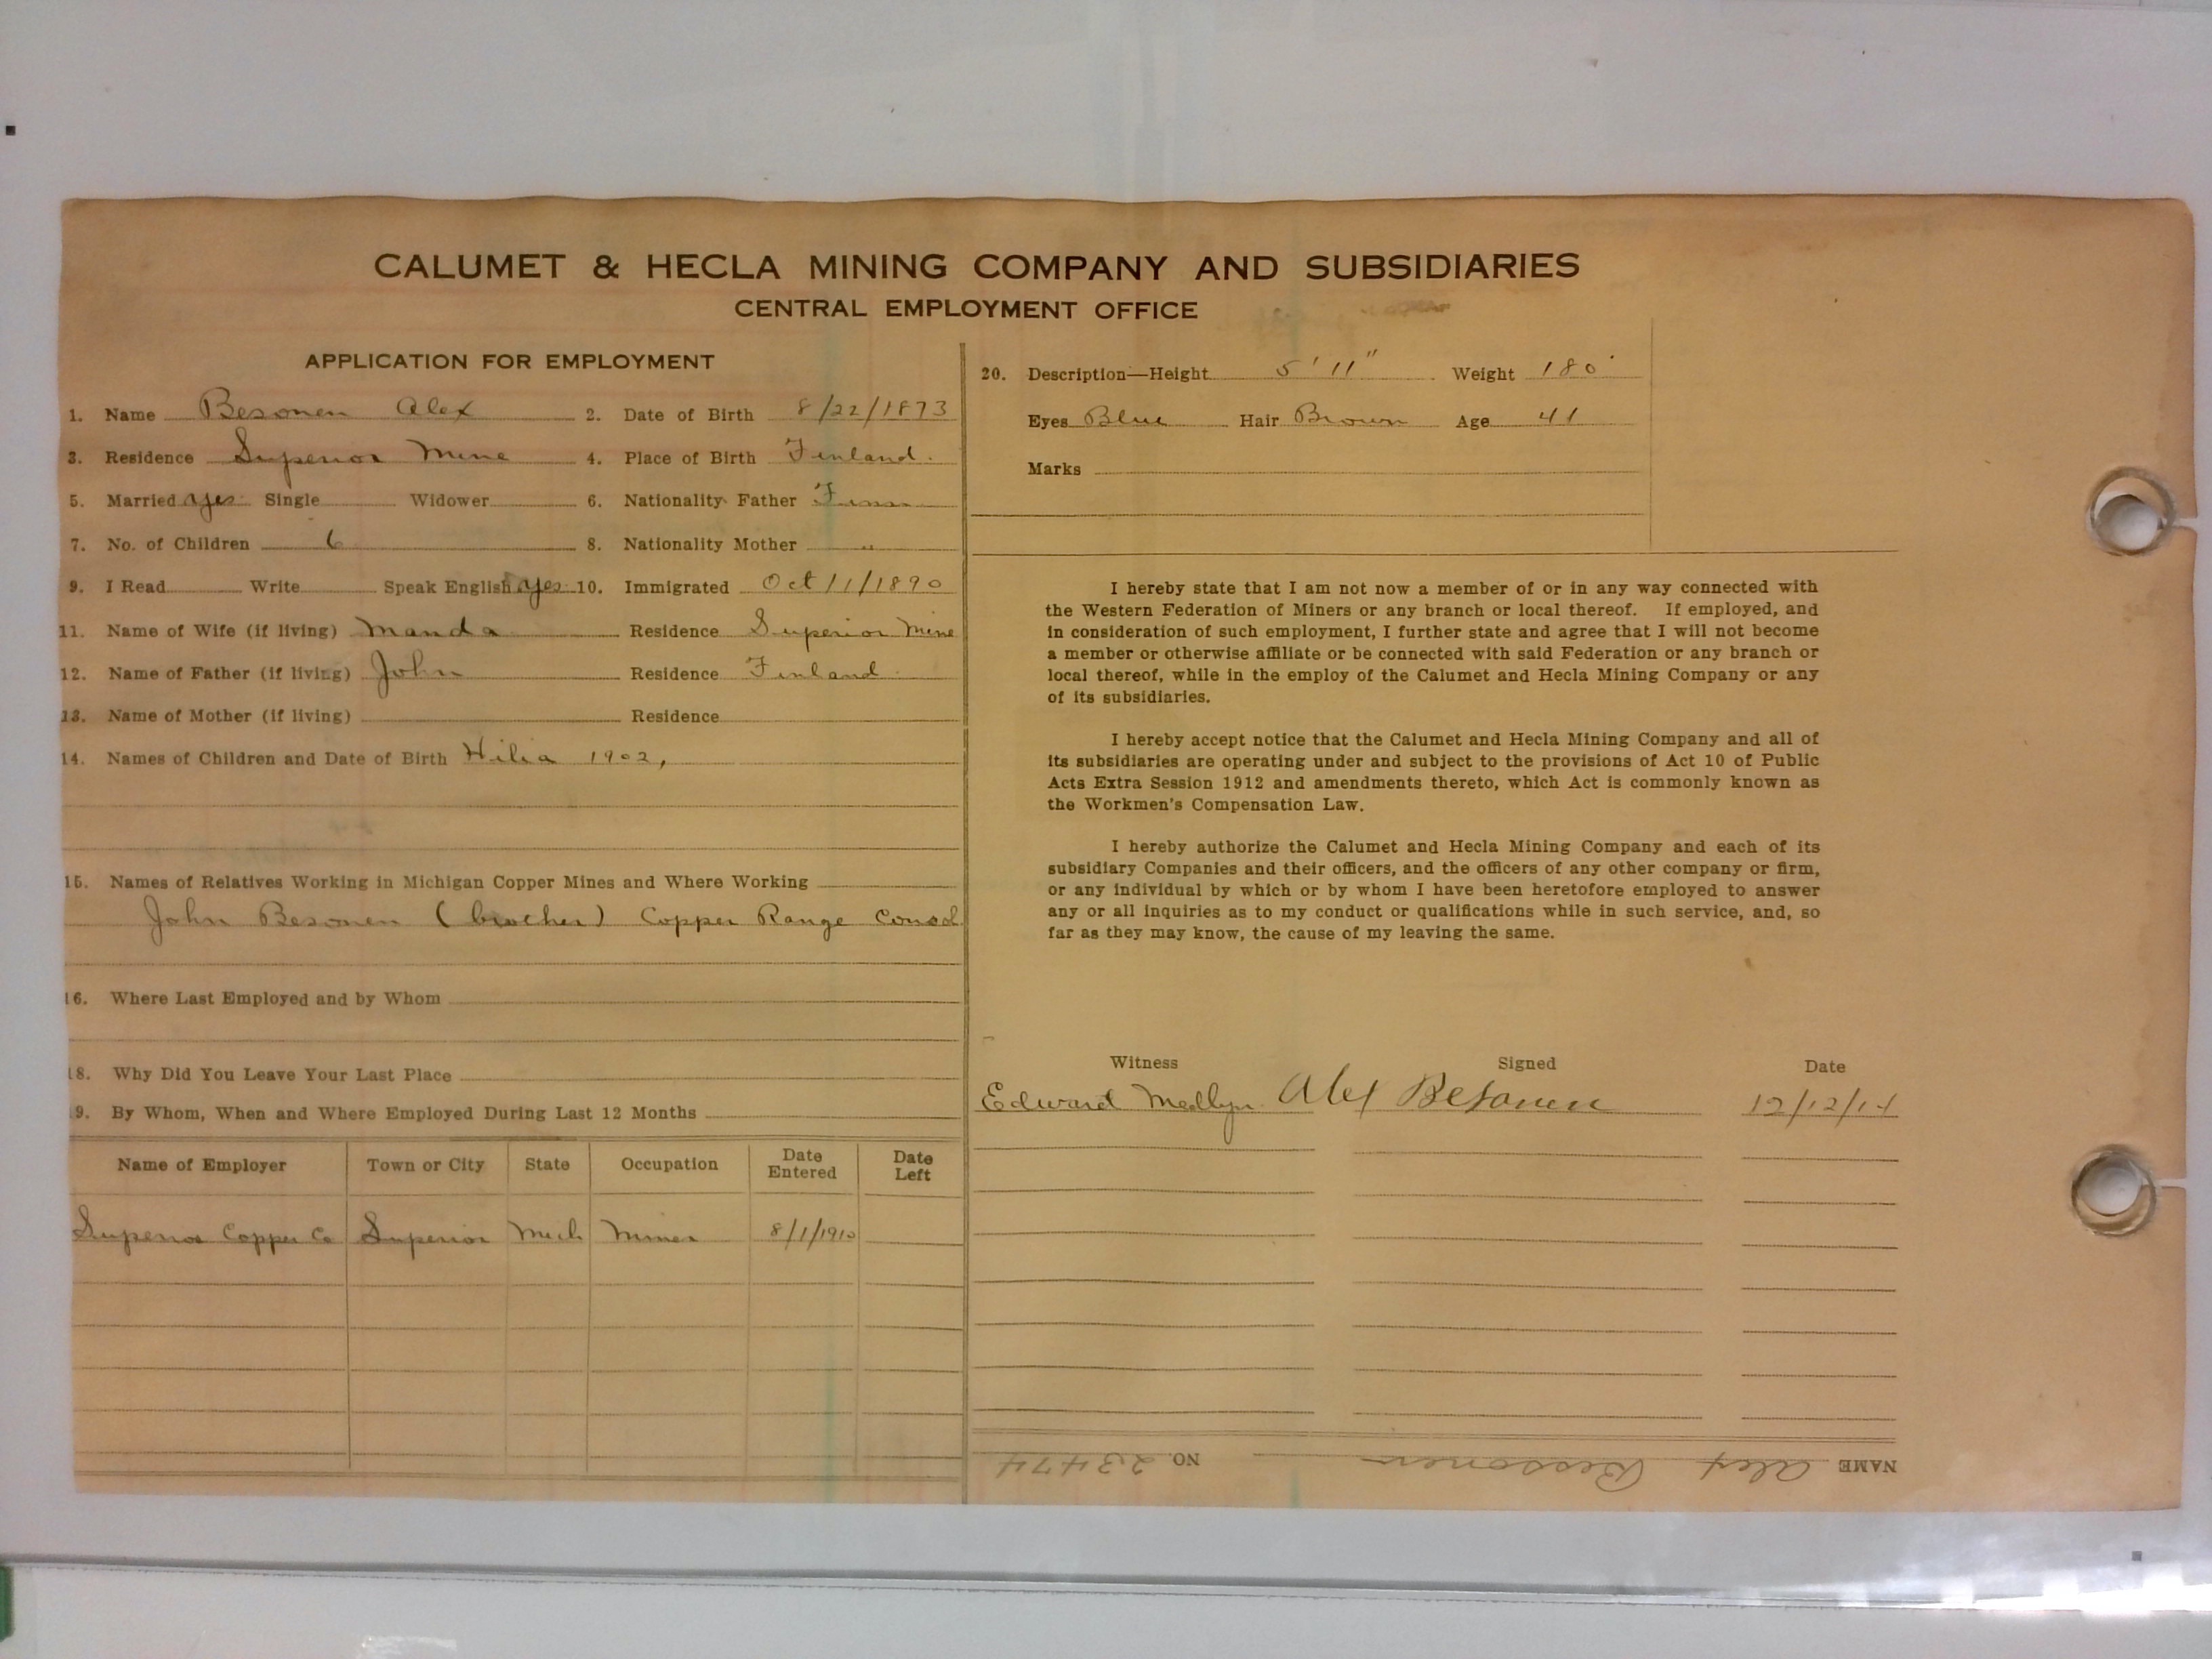 CALUMET & HECLA MINING COMPANY AND SUBSIDIARIES
CENTRAL EMPLOYMENT OFFICE
APPLICATION FOR EMPLOYMENT
1. Name Besonen Alex 2. Date of Birth 8/22/1873
3. Residence Superior Mine 4. Place of Birth Finland.
5. Married yes Single Widower 6. Nationality Father Finn
7. No. of Children 6 8. Nationality Mother "
9. I Read Write Speak English yes 10. Immigrated Oct 11/1890
11. Name of Wife (if living) Manda Residence Superior Mine
12. Name of Father (if living) John Residence Finland
13. Name of Mother (if living) Residence
14. Names of Children and Date of Birth Hilia 1902,
15. Names of Relatives Working in Michigan Copper Mines and Where Working
John Besonen (brother) Copper Range Consol
16. Where Last Employed and by Whom
18. Why Did You Leave Your Last Place
9. By Whom, When and Where Employed During Last 12 Months
Name of Employer Town or City State Occupation Date Entered Date Left
Superior Copper Co Superior Mich Miner 8/1/1910
20. Description—Height 5' 11" Weight 180
Eyes Blue Hair Brown Age 41
Marks
I hereby state that I am not now a member of or in any way connected with
the Western Federation of Miners or any branch or local thereof. If employed, and
in consideration of such employment, I further state and agree that I will not become
a member or otherwise affiliate or be connected with said Federation or any branch or
local thereof, while in the employ of the Calumet and Hecla Mining Company or any
of its subsidiaries.
I hereby accept notice that the Calumet and Hecla Mining Company and all of
its subsidiaries are operating under and subject to the provisions of Act 10 of Public
Acts Extra Session 1912 and amendments thereto, which Act is commonly known as
the Workmen's Compensation Law.
I hereby authorize the Calumet and Hecla Mining Company and each of its
subsidiary Companies and their officers, and the officers of any other company or firm,
or any individual by which or by whom I have been heretofore employed to answer
any or all inquiries as to my conduct or qualifications while in such service, and, so
far as they may know, the cause of my leaving the same.
Witness Signed Date
Edward Medlyn Alex Besonen 12/12/14
NAME Alex Bessonen NO. 23474